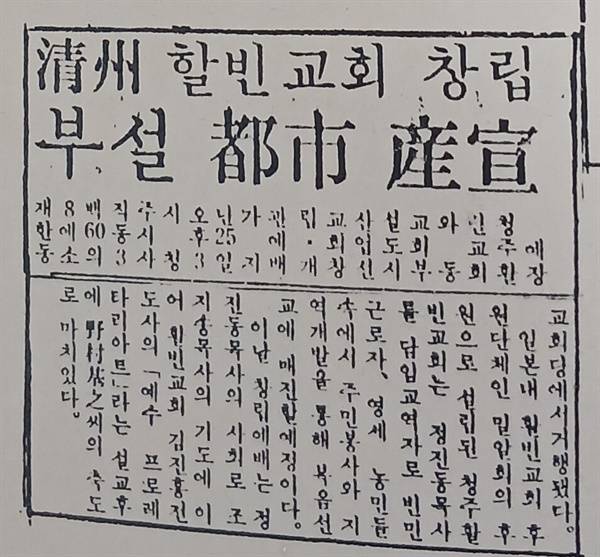 清州 할빈교회 창립
부설 都市 産宣
예장
청주활
빈교회
와 동
교회부
설도시
산업선
교회창
립·개
관예배
가 지
난25일
오후3
시 청
주시사
직동3
백60의
8에소
재한동
교회당에서거행됐다。
일본내 활빈교회 후
원단체인 밀알회의 후
원으로 설립된 청주활
빈교회는 정진동목사
를 담임교역자로 빈민
근로자、영세 농민들
속에서 주민봉사와 지
역개발을 통해 복음선
교에 매진할예정이다。
이날 창립예배는 정
진동목사의 사회로 조
지송목사의 기도에 이
어 활빈교회 김진홍전
도사의「예수 프로레
타리아트」라는 설교후
에 野村基之씨의 축도
로 마치었다。